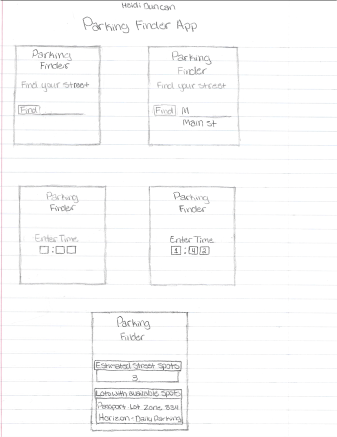 Heidi Duncan
Parking Finder App
Parking
Finder
Find your street
Find
Parking
Finder
Find your street
Find M
Main st
Parking
Finder
Enter Time
:
Parking
Finder
Enter Time
1:42
Parking
Finder
Estimated Street Spots
3
Lots with available Spots
Passport Lot Zone 334
Horizon-Daily Parking